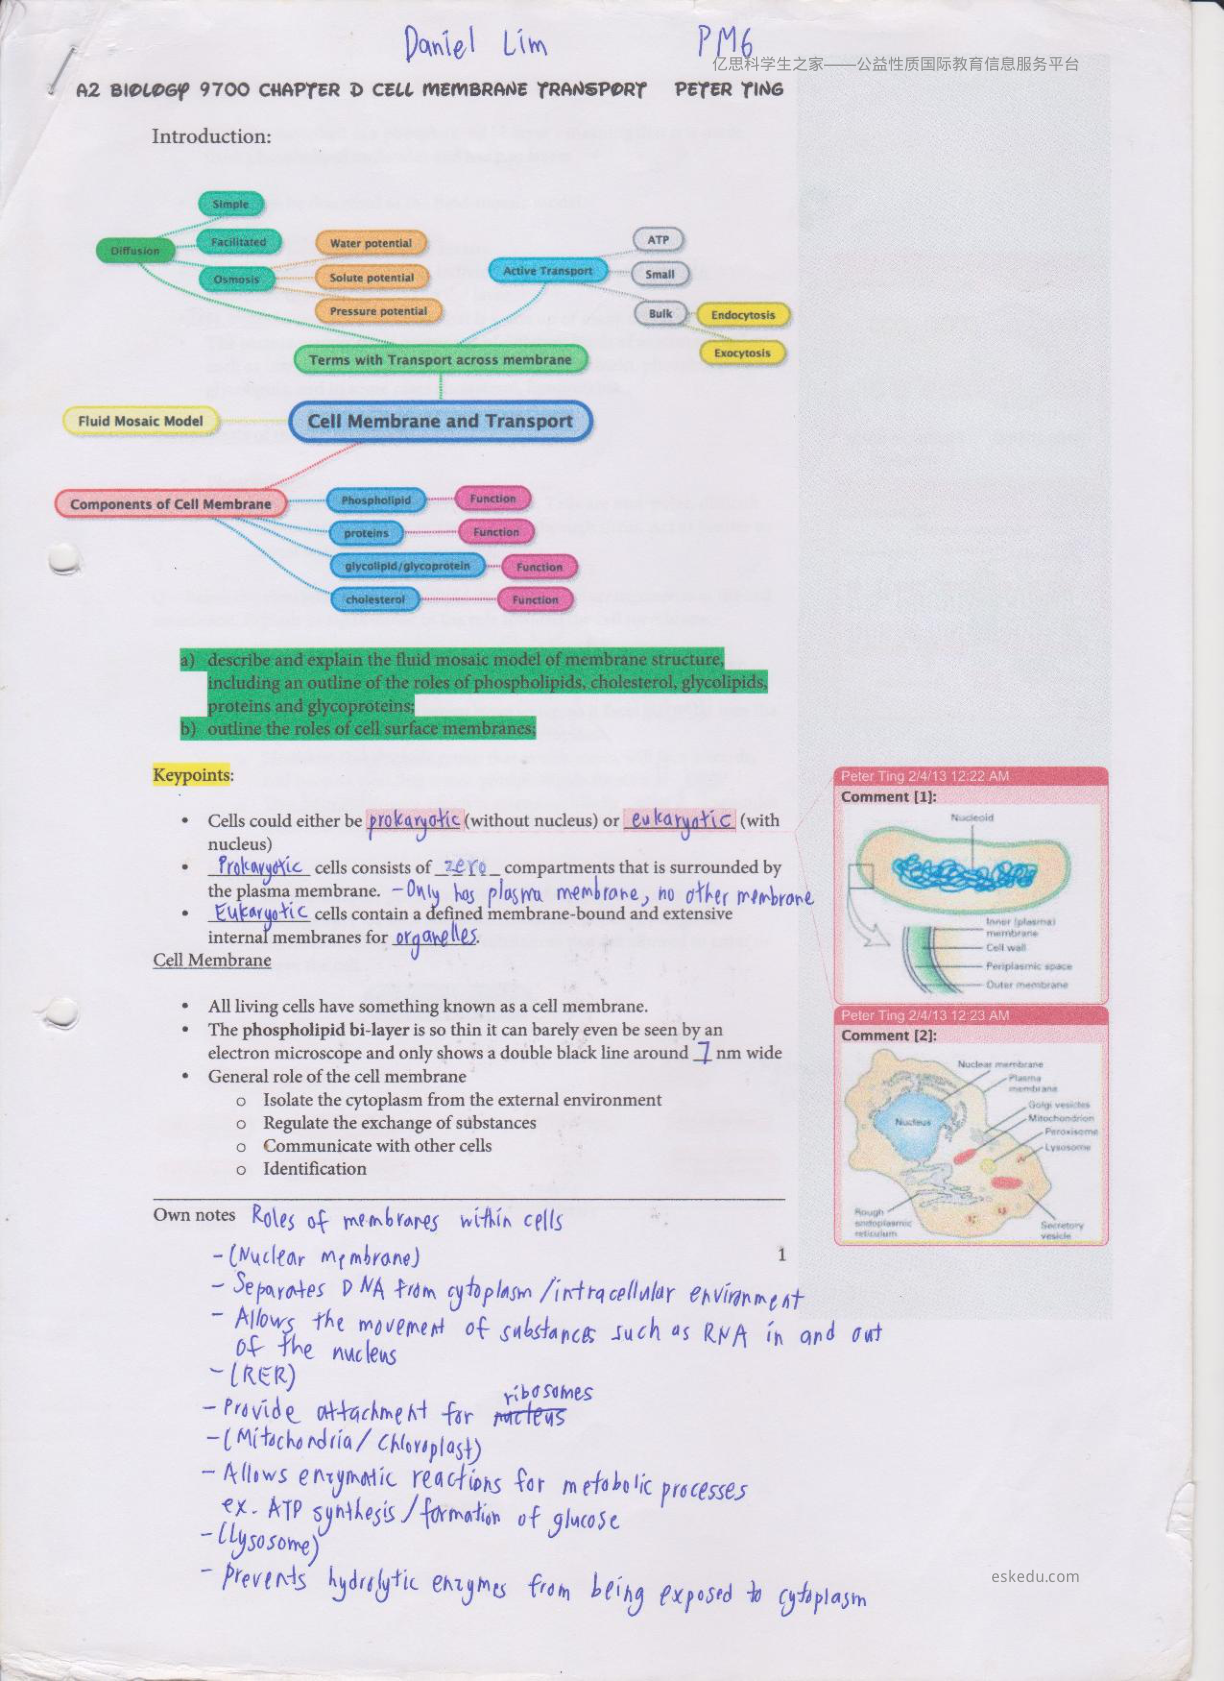 Daniel Lim PM6
亿思科学生之家——公益性质国际教育信息服务平台
A2 BIOLOGY 9700 CHAPTER D CELL MEMBRANE TRANSPORT PETER TING
Introduction:
Simple
Diffusion
Facilitated
Osmosis
Water potential
Solute potential
Pressure potential
Active Transport
ATP
Small
Bulk
Endocytosis
Exocytosis
Terms with Transport across membrane
Fluid Mosaic Model
Cell Membrane and Transport
Components of Cell Membrane
Phospholipid Function
proteins Function
glycolipid/glycoprotein Function
cholesterol Function
a) describe and explain the fluid mosaic model of membrane structure,
including an outline of the roles of phospholipids, cholesterol, glycolipids,
proteins and glycoproteins;
b) outline the roles of cell surface membranes;
Keypoints:
• Cells could either be prokaryotic (without nucleus) or eukaryotic (with
nucleus)
• Prokaryotic cells consists of zero compartments that is surrounded by
the plasma membrane. - Only has plasma membrane, no other membrane
• Eukaryotic cells contain a defined membrane-bound and extensive
internal membranes for organelles.
Cell Membrane
• All living cells have something known as a cell membrane.
• The phospholipid bi-layer is so thin it can barely even be seen by an
electron microscope and only shows a double black line around 7 nm wide
• General role of the cell membrane
o Isolate the cytoplasm from the external environment
o Regulate the exchange of substances
o Communicate with other cells
o Identification
Peter Ting 2/4/13 12:22 AM
Comment [1]:
Nucleoid
Inner (plasma)
membrane
Cell wall
Periplasmic space
Outer membrane
Peter Ting 2/4/13 12:23 AM
Comment [2]:
Nuclear membrane
Plasma
membrane
Golgi vesicles
Mitochondrion
Peroxisome
Lysosome
Nucleus
Rough
endoplasmic
reticulum
Secretory
vesicle
Own notes Roles of membranes within cells
1
- (Nuclear membrane)
- Separates DNA from cytoplasm/intracellular environment
- Allows the movement of substances such as RNA in and out
of the nucleus
- (RER)
ribosomes
- Provide attachment for nucleus
- (Mitochondria/Chloroplast)
- Allows enzymatic reactions for metabolic processes
ex. ATP synthesis/formation of glucose
- (Lysosome)
- Prevents hydrolytic enzymes from being exposed to cytoplasm
eskedu.com